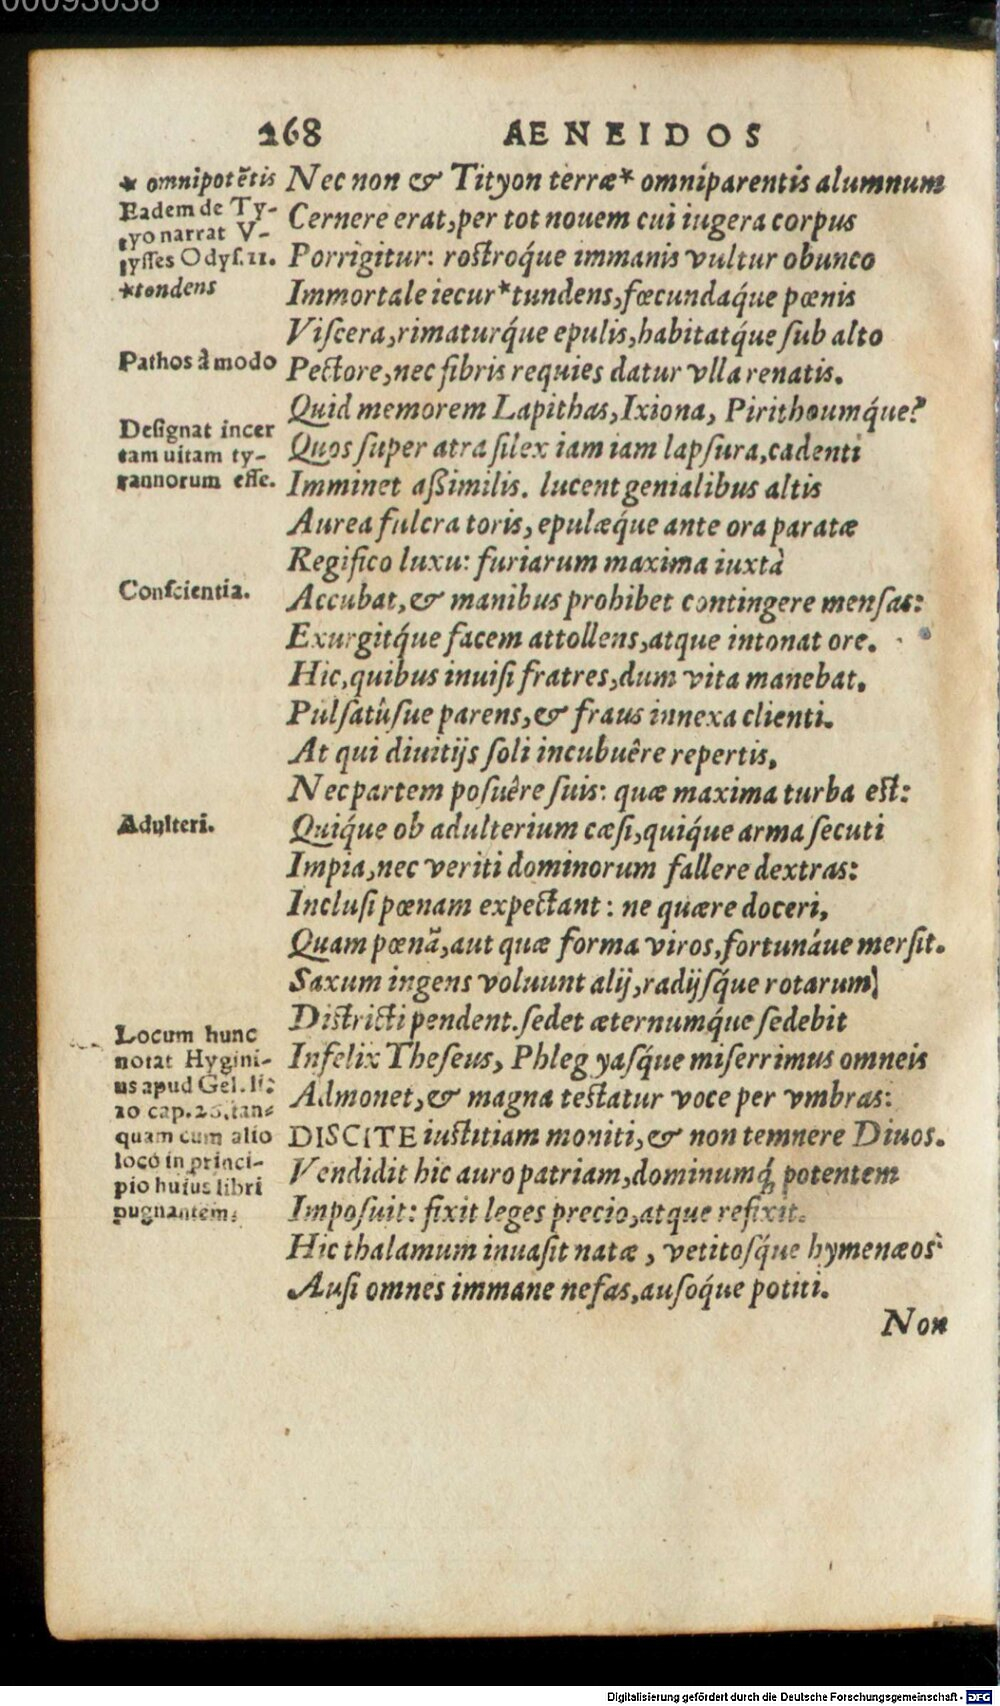 00093038
268 AENEIDOS
* omnipotẽtis
Eadem de Ty-
tyo narrat V-
lysses Odys. 11.
*tondens
Pathos à modo
Designat incer
tam uitam ty-
rannorum esse.
Conscientia.
Adulteri.
Locum hunc
notat Hygini-
us apud Gel. li:
10 cap. 16. tan-
quam cum alio
loco in princi-
pio huius libri
pugnantem.
Nec non & Tityon terræ* omniparentis alumnum
Cernere erat, per tot nouem cui iugera corpus
Porrigitur: rostroq́ue immanis vultur obunco
Immortale iecur* tundens, fœcundaq́ue pœnis
Viscera, rimaturq́ue epulis, habitatq́ue sub alto
Pectore, nec fibris requies datur vlla renatis.
Quid memorem Lapithas, Ixiona, Pirithoumq́ue?
Quos super atra silex iam iam lapsura, cadenti
Imminet aßimilis. lucent genialibus altis
Aurea fulcra toris, epulæq́ue ante ora paratæ
Regifico luxu: furiarum maxima iuxtà
Accubat, & manibus prohibet contingere mensas:
Exurgitq́ue facem attollens, atque intonat ore.
Hic, quibus inuisi fratres, dum vita manebat,
Pulsatúsue parens, & fraus innexa clienti.
At qui diuitijs soli incubuêre repertis,
Nec partem posuêre suis: quæ maxima turba est:
Quiq́ue ob adulterium cæsi, quiq́ue arma secuti
Impia, nec veriti dominorum fallere dextras:
Inclusi pœnam expectant: ne quære doceri,
Quam pœnã, aut quæ forma viros, fortunáue mersit.
Saxum ingens voluunt alij, radijsq́ue rotarum
Districti pendent. sedet æternumq́ue sedebit
Infelix Theseus, Phlegyasq́ue miserrimus omneis
Admonet, & magna testatur voce per vmbras:
DISCITE iustitiam moniti, & non temnere Diuos.
Vendidit hic auro patriam, dominumq́; potentem
Imposuit: fixit leges precio, atque refixit.
Hic thalamum inuasit natæ, vetitosq́ue hymenæos
Ausi omnes immane nefas, ausoq́ue potiti.
Non
Digitalisierung gefördert durch die Deutsche Forschungsgemeinschaft - DFG